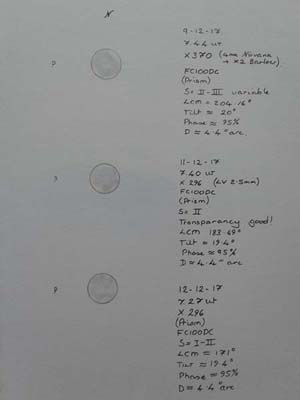 N
9-12-17
7.44 ut
X370 (4mm Nirvana
→ x2 Barlow)
P
FC100DC
(Prism)
S= II-III variable
LCM = 204.16°
Tilt ≈ 20°
Phase ≈ 95%
D ≈ 4.4" arc.
11-12-17
7.40 ut
X 296 (LV 2.5mm)
FC100DC
(Prism)
S= II
Transparancy good!
LCM 183.69°
Tilt ≈ 19.4°
Phase ≈ 95%
D ≈ 4.4" arc
P
12-12-17
7.27 ut
X 296
(Prism)
FC100DC
S= I-II
LCM ≈ 171°
Tilt ≈ 19.4°
Phase ≈ 95%
D ≈ 4.4" arc